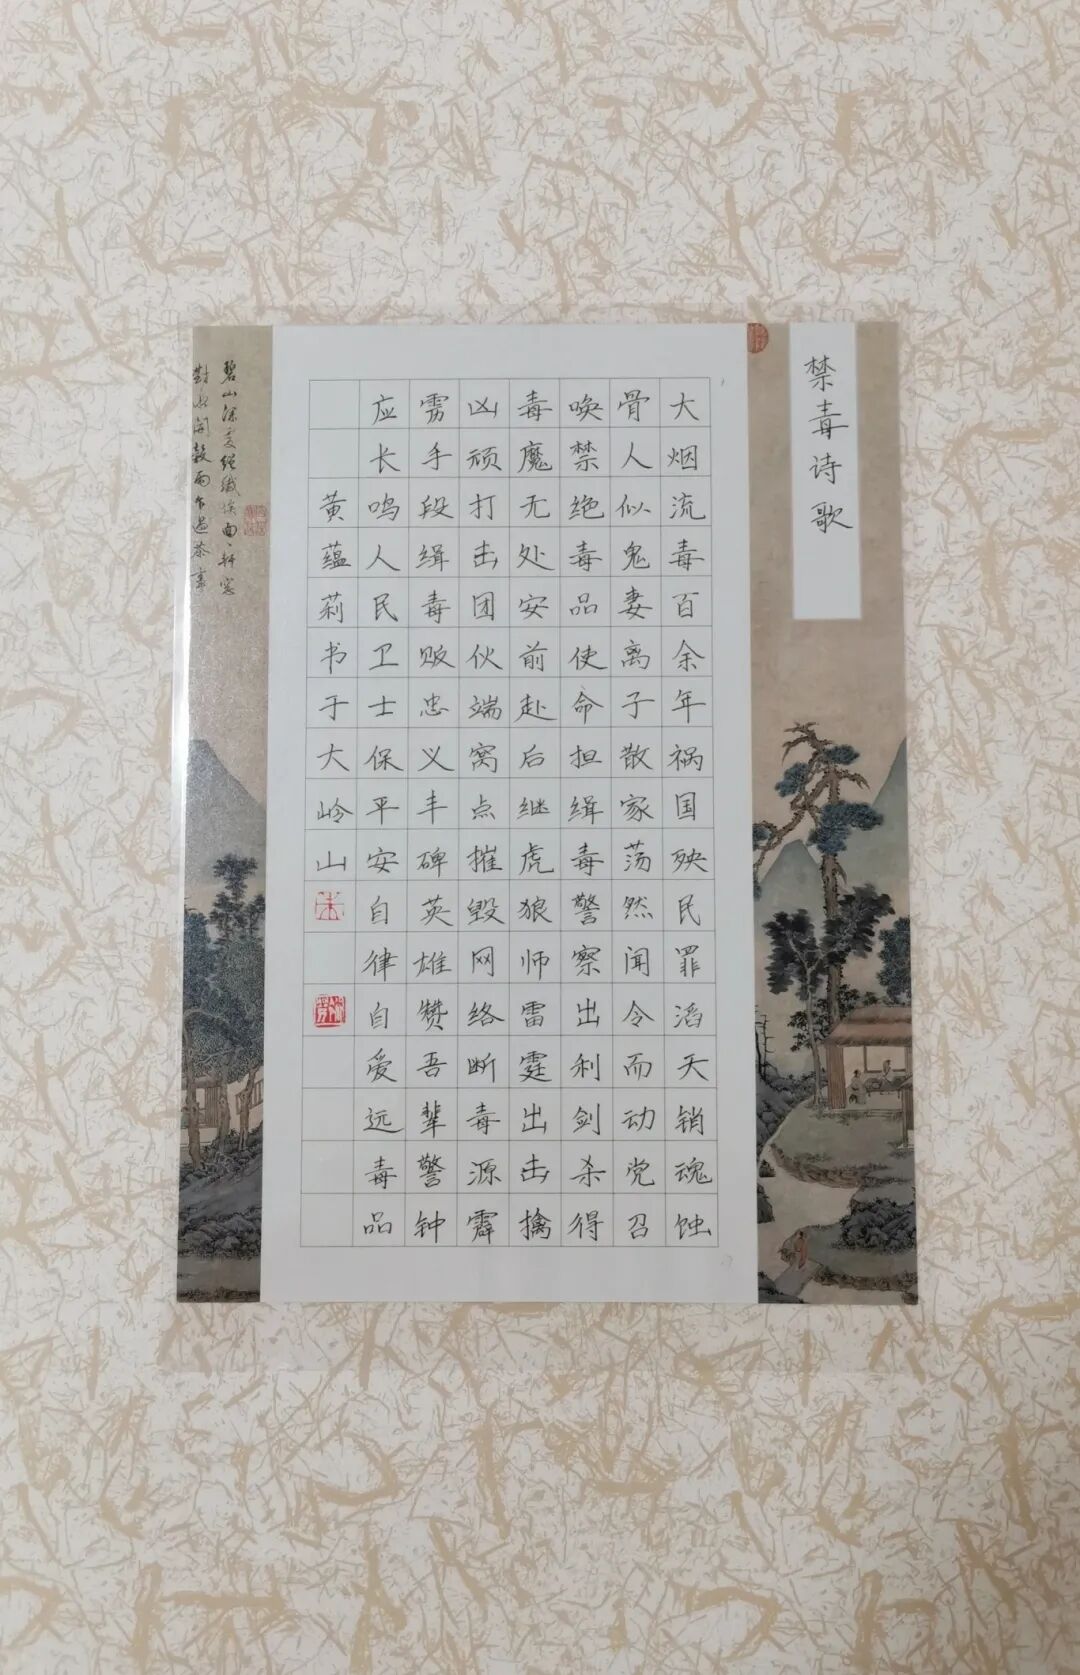 禁毒诗歌
大烟流毒百余年祸国殃民罪滔天销魂蚀
骨人似鬼妻离子散家荡然闻令而动党召
唤禁绝毒品使命担缉毒警察出利剑杀得
毒魔无处安前赴后继虎狼师雷霆出击擒
凶顽打击团伙端窝点摧毁网络断毒源霹
雳手段缉毒贩忠义丰碑英雄赞吾辈警钟
应长鸣人民卫士保平安自律自爱远毒品
黄蕴莉书于大岭山
碧山深处绝纤埃面面轩窗
對水開穀雨乍過茶事